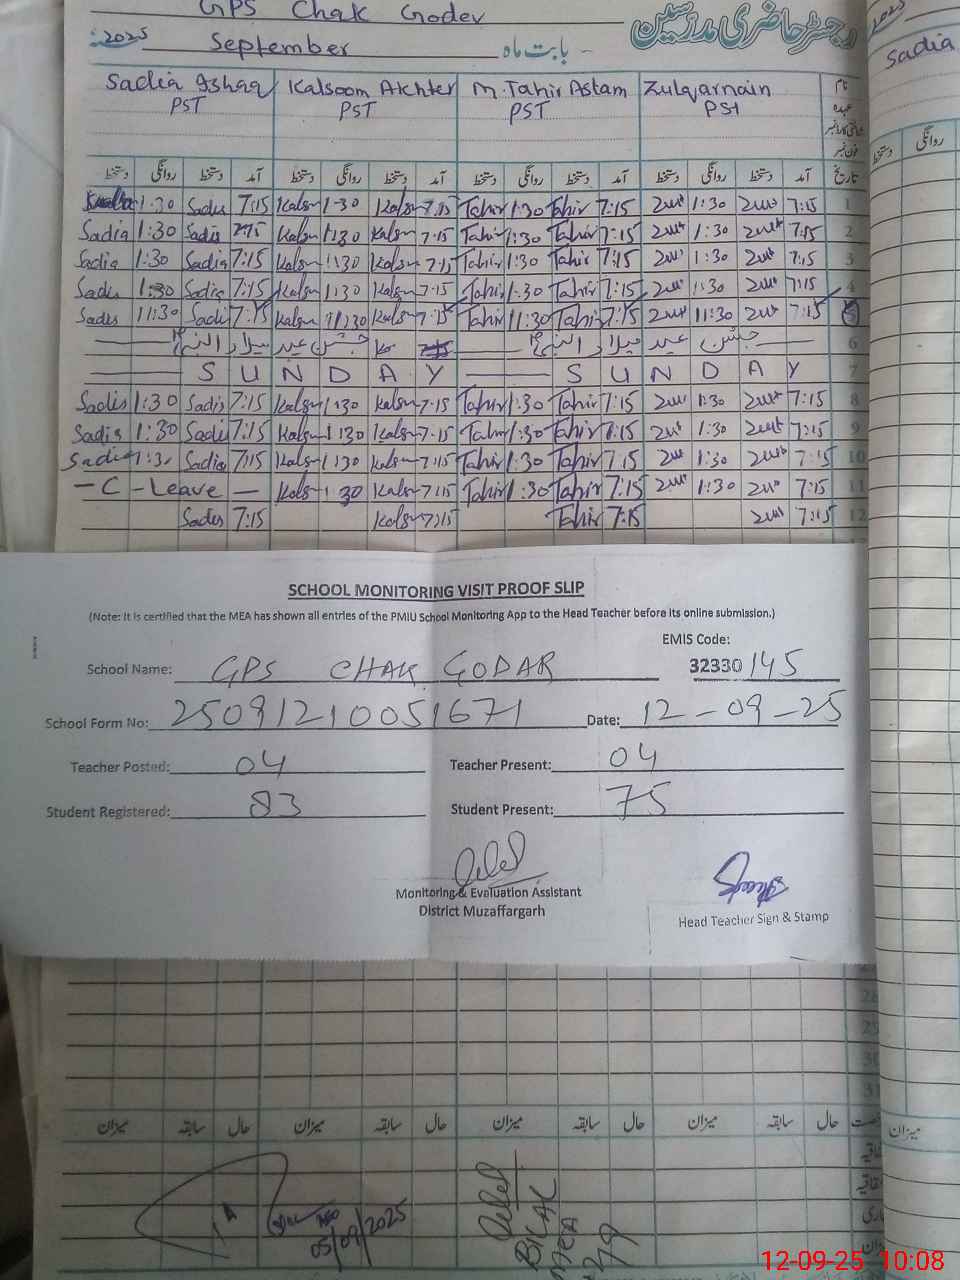 GPS Chak Godev
رجسٹر حاضری مدرسین
2025 September بابت ماہ
Sadia Ishaq Kalsoom Akhter M. Tahir Aslam Zulqarnain نام
PST PST PST PST عہدہ
دستخط روانگی دستخط آمد دستخط روانگی دستخط آمد دستخط روانگی دستخط آمد دستخط روانگی دستخط آمد تاریخ
1:30 Sadis 7:15 Kalsm 1:30 Kalsm 7:15 Tahir 1:30 Tahir 7:15 1:30 7:15 1
Sadia 1:30 Sadis 7:15 Kalsm 1:30 Kalsm 7:15 Tahir 1:30 Tahir 7:15 1:30 7:15 2
Sadia 1:30 Sadia 7:15 Kalsm 1:30 Kalsm 7:15 Tahir 1:30 Tahir 7:15 1:30 7:15 3
Sadis 1:30 Sadia 7:15 Kalsm 1:30 Kalsm 7:15 Tahir 1:30 Tahir 7:15 1:30 7:15 4
Sadis 11:30 Sadi 7:15 Kalsm 11:30 Kalsm 7:15 Tahir 11:30 Tahir 7:15 11:30 7:15 5
جشن عید میلاد النبیؐ جشن عید میلاد النبیؐ 6
S U N D A Y S U N D A Y 7
Sadis 1:30 Sadis 7:15 Kalsm 1:30 Kalsm 7:15 Tahir 1:30 Tahir 7:15 1:30 7:15 8
Sadis 1:30 Sadis 7:15 Kalsm 1:30 Kalsm 7:15 Tahir 1:30 Tahir 7:15 1:30 7:15 9
Sadis 1:30 Sadia 7:15 Kalsm 1:30 Kalsm 7:15 Tahir 1:30 Tahir 7:15 1:30 7:15 10
- C - Leave - Kalsm 1:30 Kalsm 7:15 Tahir 1:30 Tahir 7:15 1:30 7:15 11
Sadis 7:15 Kalsm 7:15 Tahir 7:15 7:15 12
SCHOOL MONITORING VISIT PROOF SLIP
(Note: It is certified that the MEA has shown all entries of the PMIU School Monitoring App to the Head Teacher before its online submission.)
EMIS Code:
School Name: GPS CHAK GODAR 32330145
School Form No: 25091210051671 Date: 12-09-25
Teacher Posted: 04 Teacher Present: 04
Student Registered: 83 Student Present: 75
Monitoring & Evaluation Assistant
District Muzaffargarh
Head Teacher Sign & Stamp
28
29
30
31
میزان سابقہ حال میزان سابقہ حال میزان سابقہ حال میزان سابقہ حال
05/09/2025
BILAL
MEA
279
2025
Sadia
دستخط روانگی
میزان
12-09-25 10:08